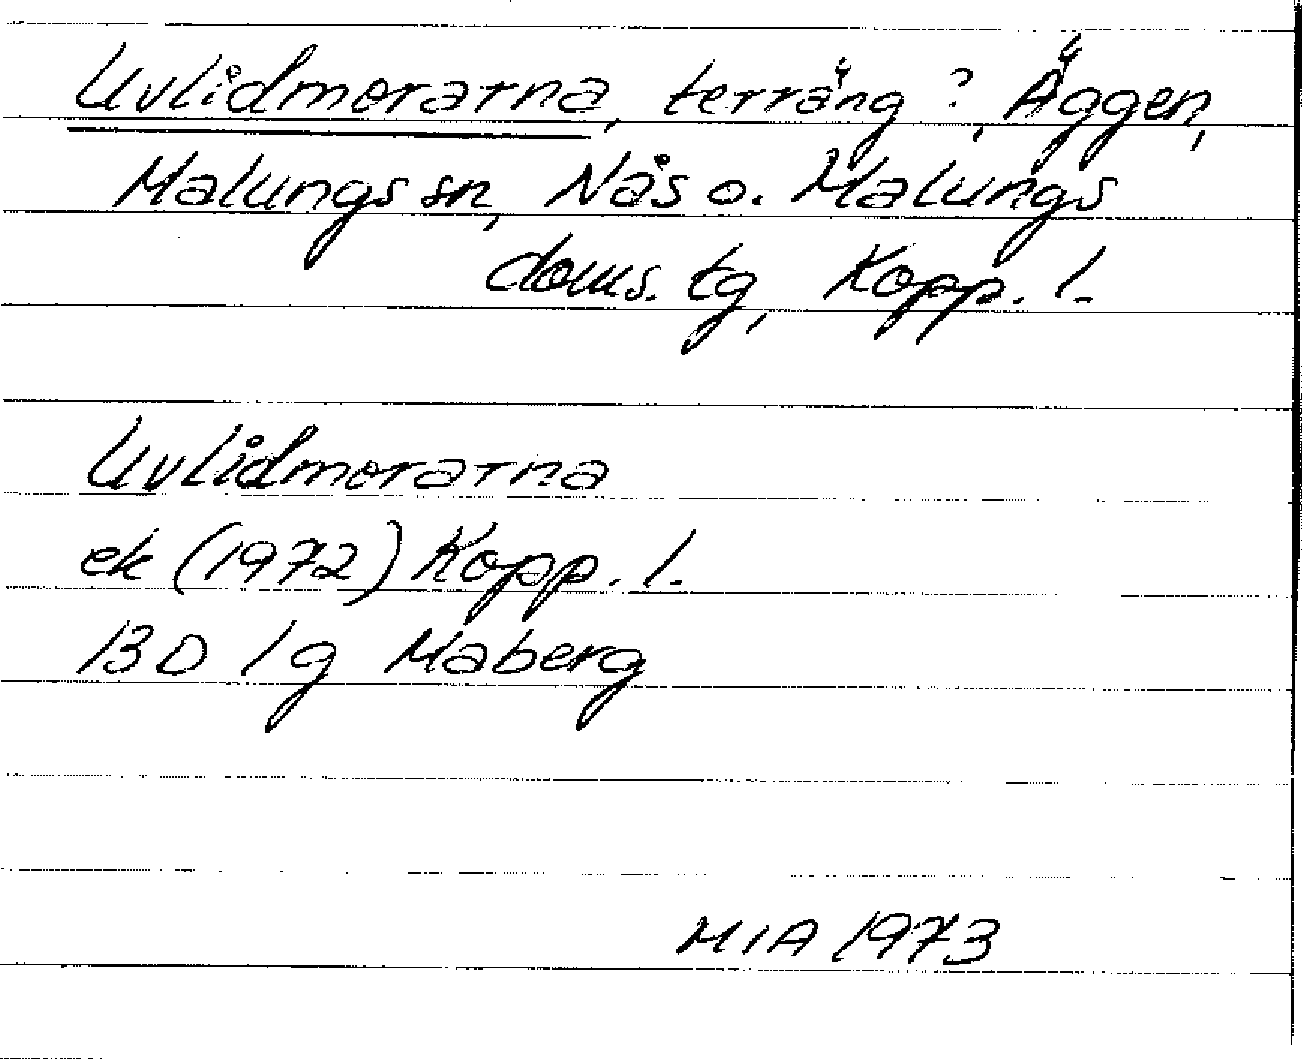 Uvlidmorarna, terräng?, Äggen,
Malungs sn, Nås o. Malungs
doms. tg, Kopp. l.
Uvlidmorarna
ek (1972) Kopp. l.
13D 1g Maberg
MIA 1973